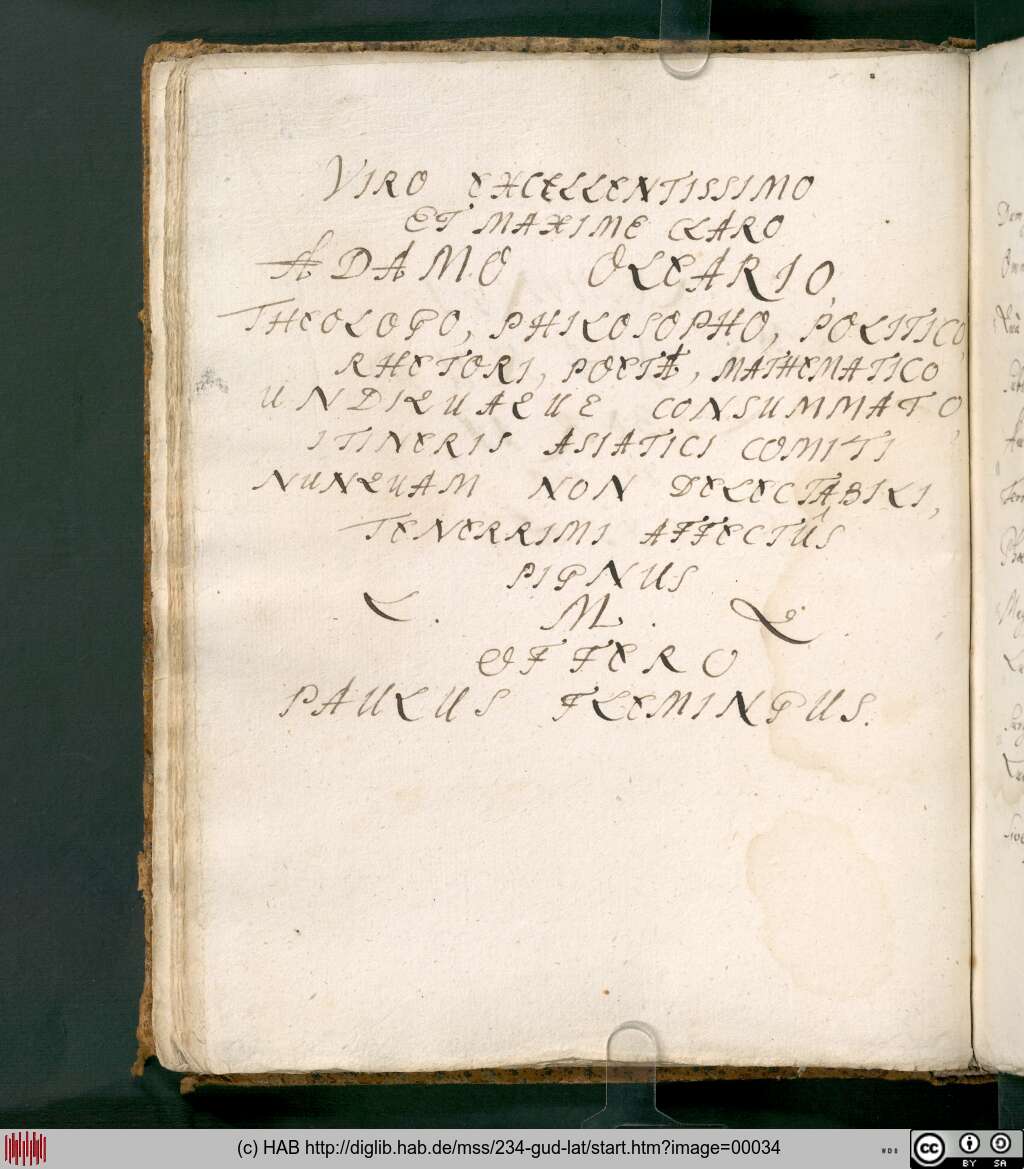 VIRO EXCELLENTISSIMO
ET MAXIME CLARO
ADAMO OLEARIO,
THEOLOGO, PHILOSOPHO, POLITICO,
RHETORI, POETÆ, MATHEMATICO
UNDIQUAQUE CONSUMMATO,
ITINERIS ASIATICI COMITI
NUNQUAM NON DELECTABILI,
TENERRIMI AFFECTÛS
PIGNUS
L. M. Q.
OFFERO
PAULUS FLEMINGUS.
(c) HAB http://diglib.hab.de/mss/234-gud-lat/start.htm?image=00034
WDB
cc BY SA